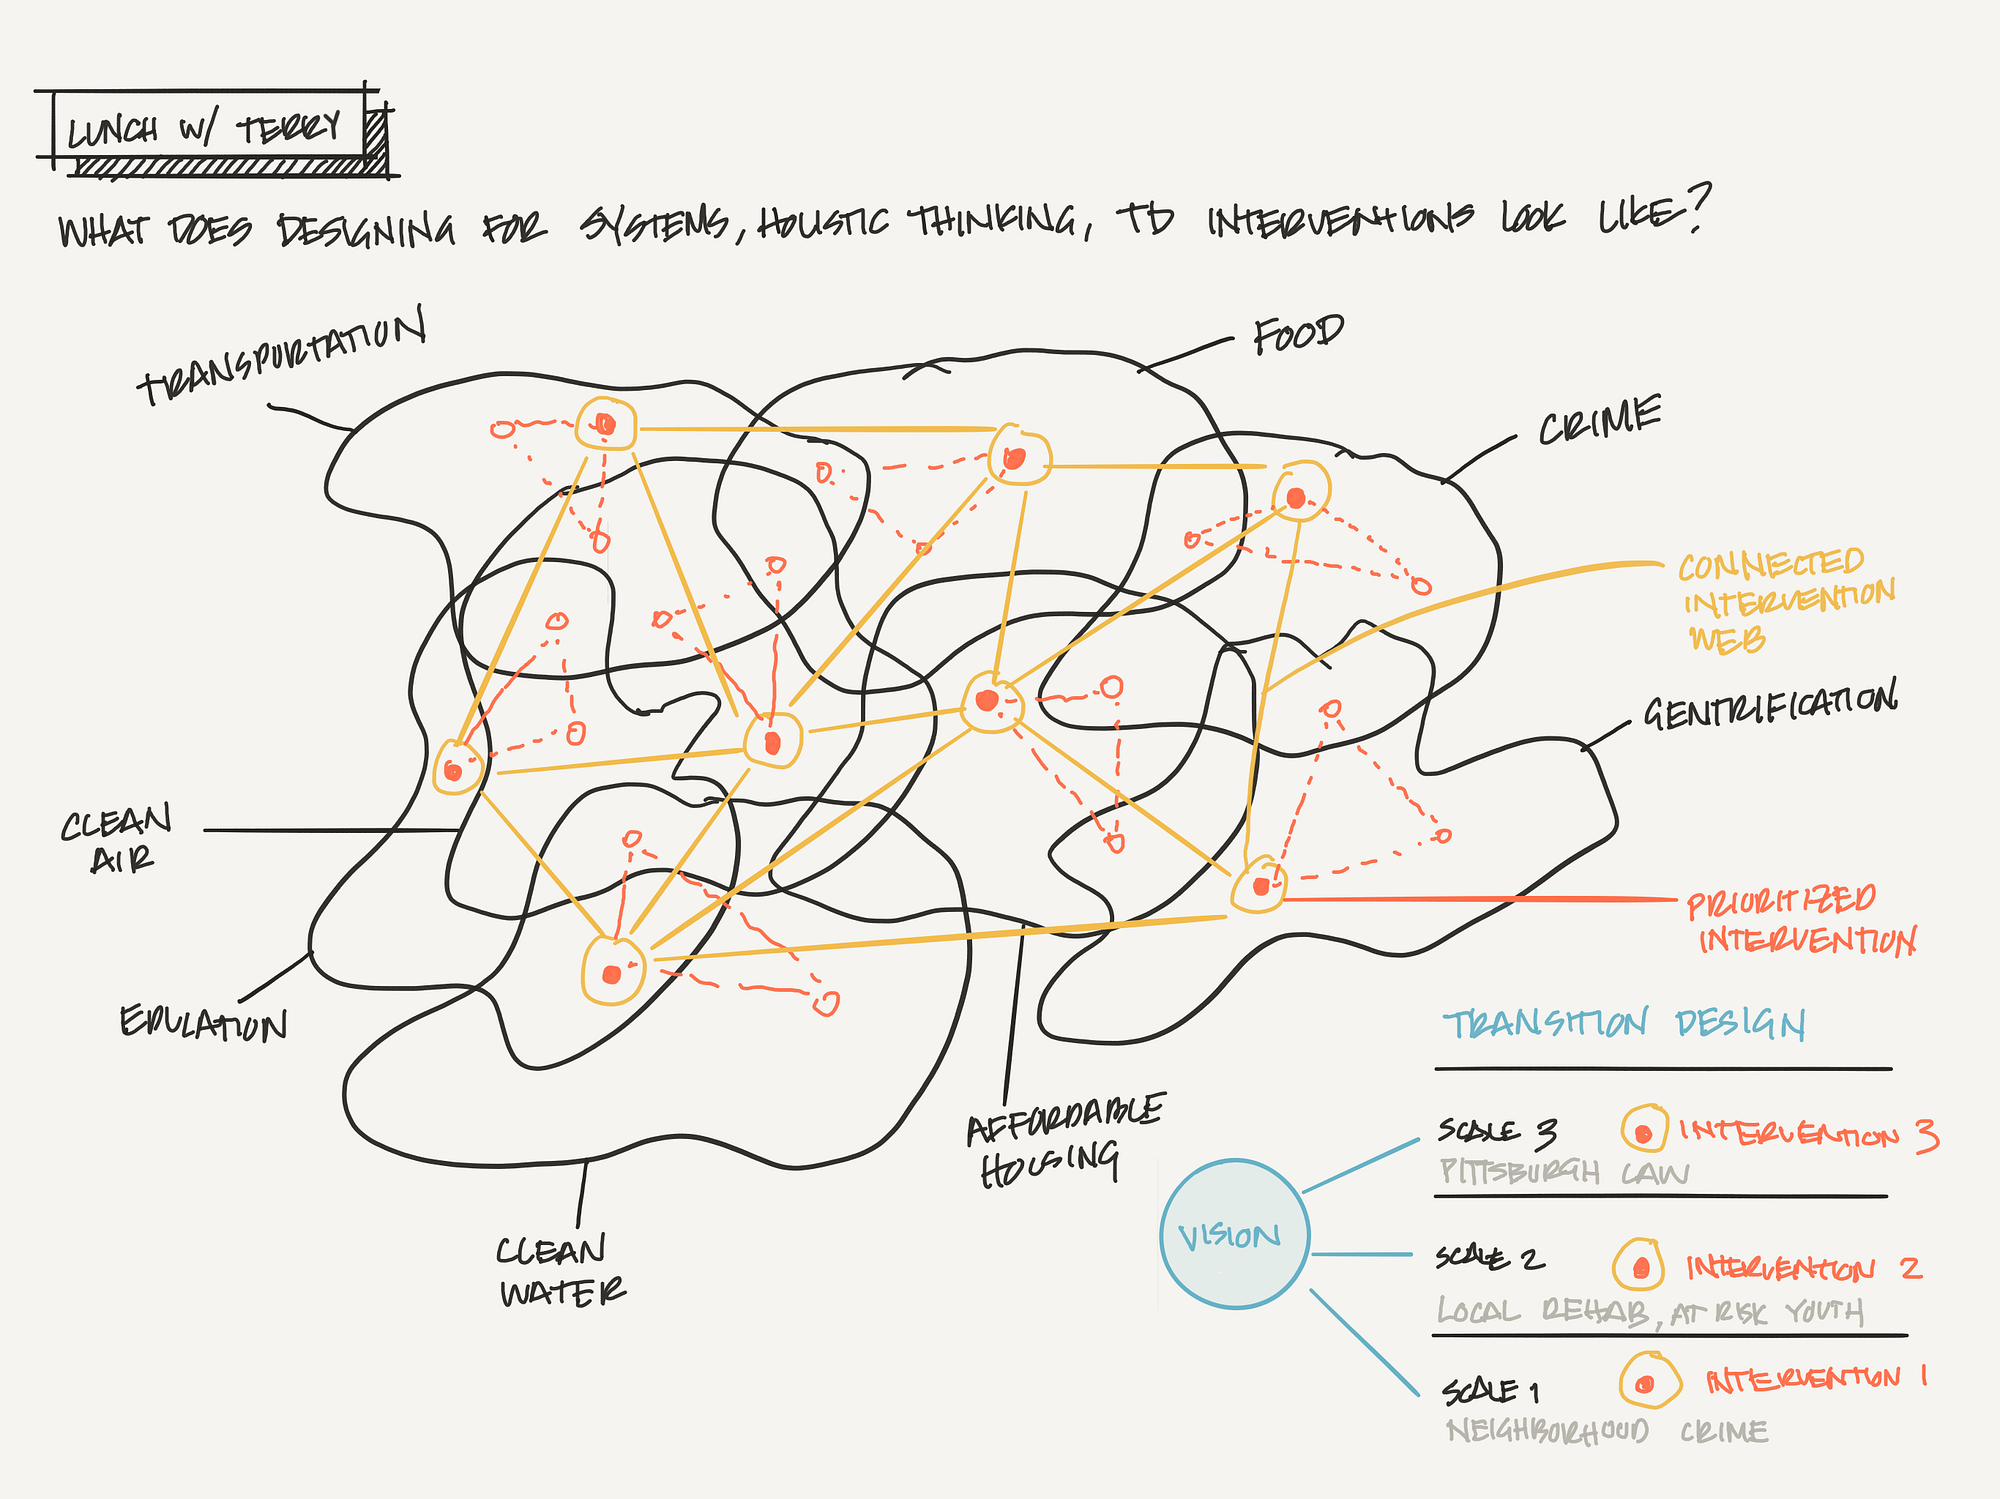 LUNCH W/ TERRY
WHAT DOES DESIGNING FOR SYSTEMS, HOLISTIC THINKING, TD INTERVENTIONS LOOK LIKE?
TRANSPORTATION
FOOD
CRIME
CONNECTED
INTERVENTION
WEB
GENTRIFICATION
CLEAN
AIR
PRIORITIZED
INTERVENTION
EDUCATION
AFFORDABLE
HOUSING
CLEAN
WATER
TRANSITION DESIGN
VISION
SCALE 3 INTERVENTION 3
PITTSBURGH LAW
SCALE 2 INTERVENTION 2
LOCAL REHAB, AT RISK YOUTH
SCALE 1 INTERVENTION 1
NEIGHBORHOOD CRIME